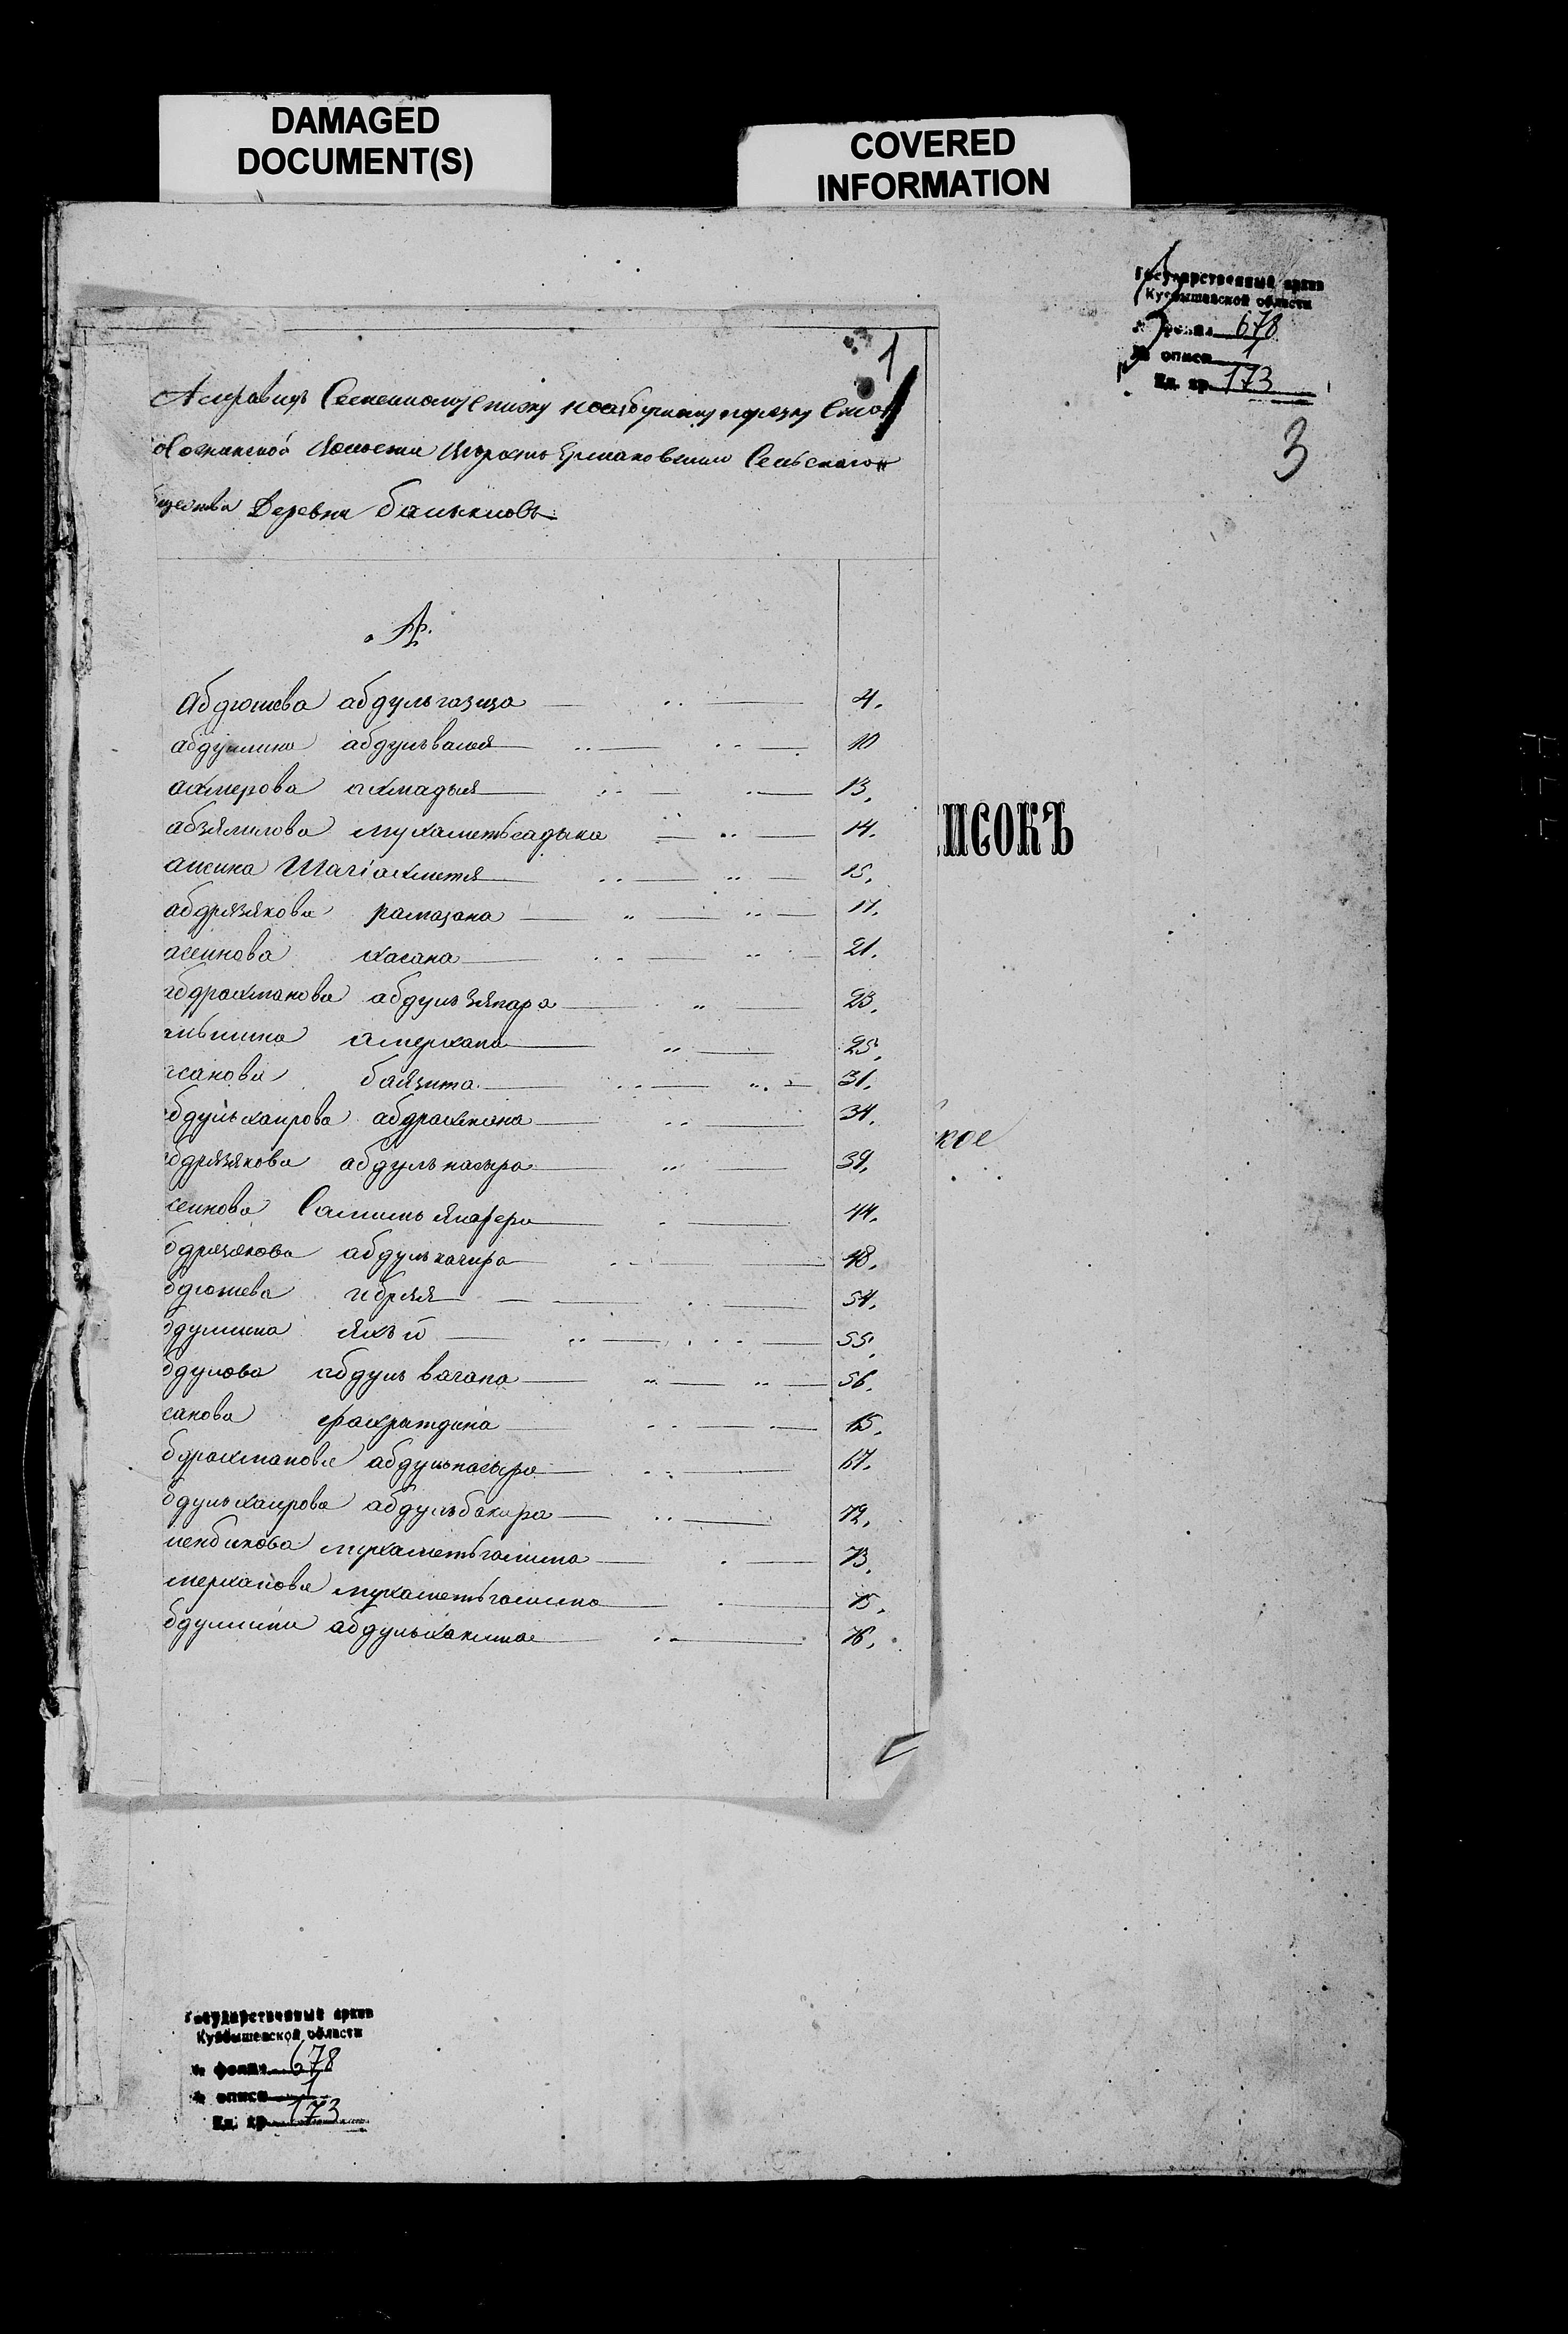 DAMAGED
DOCUMENT(S)
COVERED
INFORMATION
Государственный архив
Куйбышевской области
№ фонда 678
№ описи 1
Ед. хр. 173
3
1
Семейному списку
Сельскаго
Деревни
А.
Абдюшева абдульгазиза 4.
абдуллина абдульвалея 10
ахмерова ахмадыя 13.
абзялилова мухаметьсадыка 14.
Шагіахметя 15.
абдрязякова рамазана 17.
асеинова хасана 21.
бдрахманова абдульзяпара 23.
амерхана 25.
санова баязита 31.
бдульхаирова абдрахмана 34.
бдрязякова абдульнасыра 39.
сеинова 44.
бдрязякова абдулькаира 48.
бдюшева 54.
бдуллина 55.
бдулова абдульвагапа 56.
санова фахратдина 65.
бдрахманова абдульнасыра 67.
бдульхаирова абдульбакира 72.
мухаметьгалима 73.
мерханова мухаметьгалима 75.
бдуллина абдульхакима 76.
ПИСОКЪ
кое
Государственный архив
Куйбышевской области
№ фонда 678
№ описи 1
Ед. хр. 173